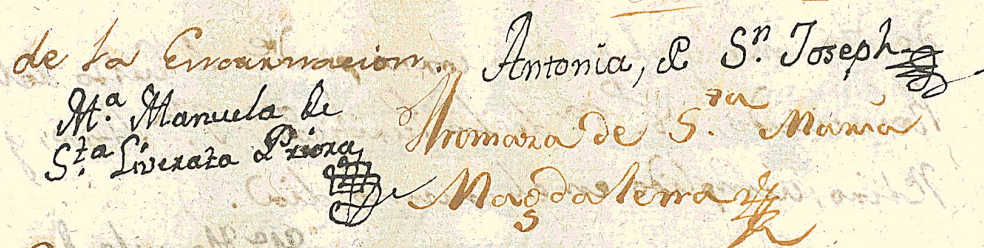 de la Encarnacion. Antonia, de Sn. Joseph
Ma. Manuela de
Sta Liverata Priora
Thomasa de S.ra Maria
Magdalena